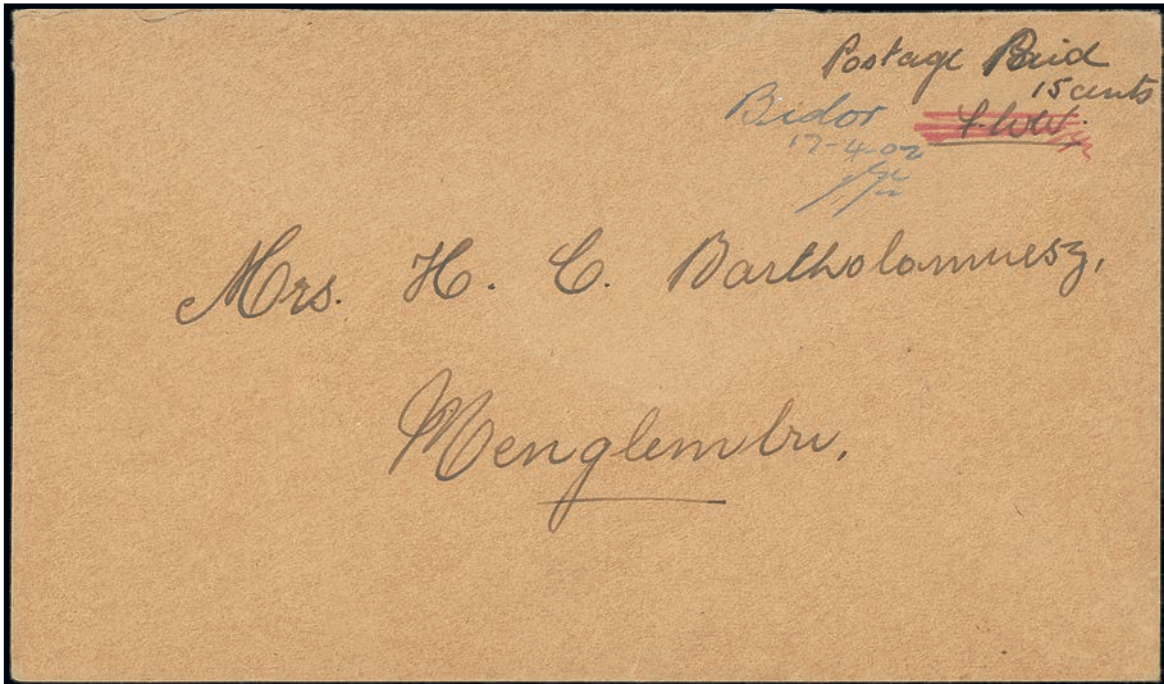 Postage Paid
15 cents
Bidor
17-4-02
Mrs. H. C. Bartholomuesz,
Menglembu,